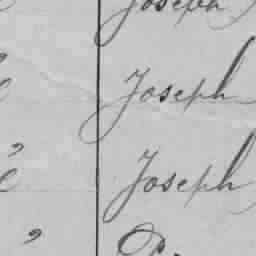 Joseph
Joseph
Joseph